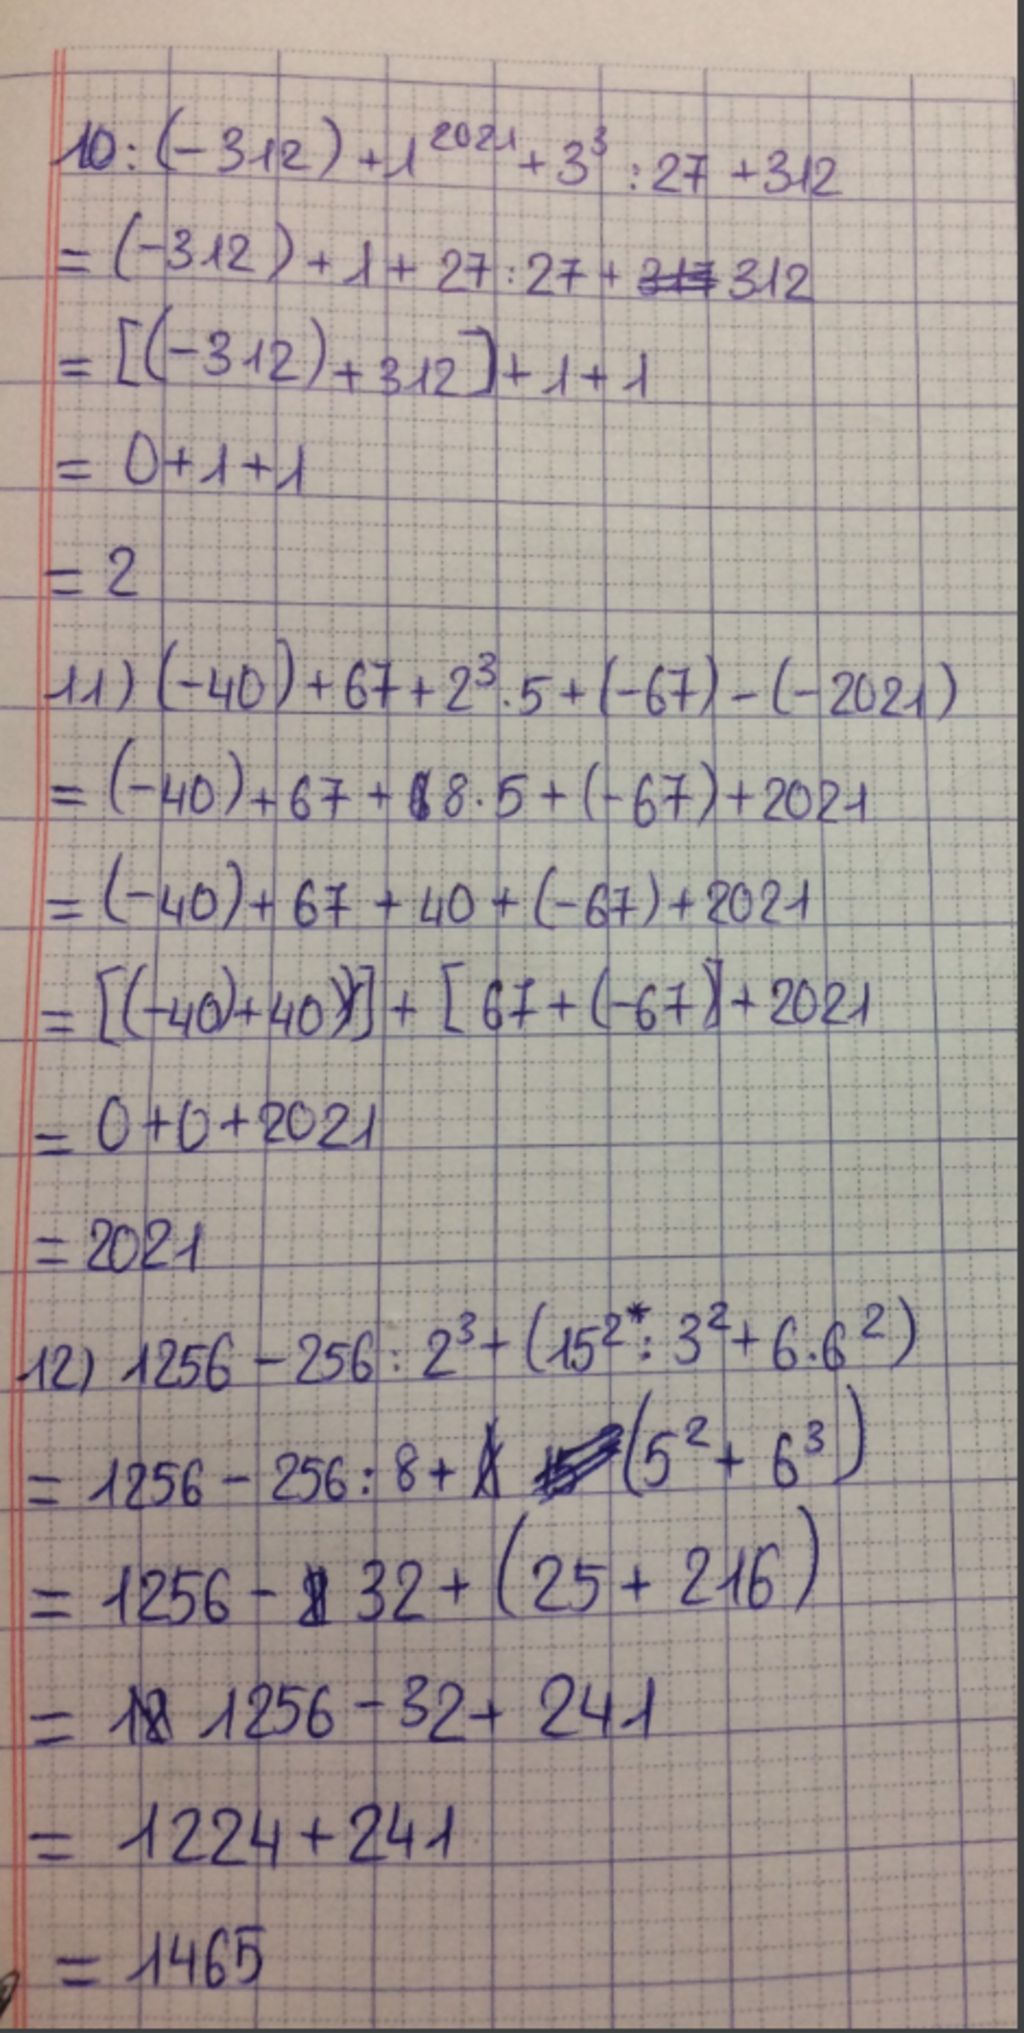 10: (-312) + 1²⁰²¹ + 3³ : 27 + 312
= (-312) + 1 + 27 : 27 + 312
= [(-312) + 312] + 1 + 1
= 0 + 1 + 1
= 2
11) (-40) + 67 + 2³ . 5 + (-67) - (-2021)
= (-40) + 67 + 8 . 5 + (-67) + 2021
= (-40) + 67 + 40 + (-67) + 2021
= [(-40) + 40)] + [67 + (-67] + 2021
= 0 + 0 + 2021
= 2021
12) 1256 - 256 : 2³ + (15² : 3² + 6 . 6²)
= 1256 - 256 : 8 + (5² + 6³)
= 1256 - 32 + (25 + 216)
= 1256 - 32 + 241
= 1224 + 241
= 1465